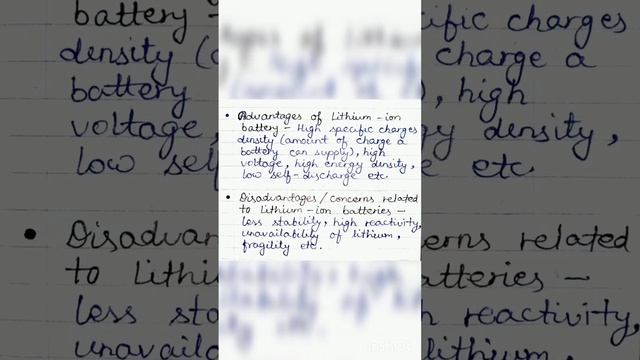 • Advantages of Lithium-ion
battery - High specific charges
density (amount of charge a
battery can supply), high
voltage, high energy density,
low self-discharge etc.
• Disadvantages/concerns related
to Lithium-ion batteries -
less stability, high reactivity,
unavailability of lithium,
fragility etc.